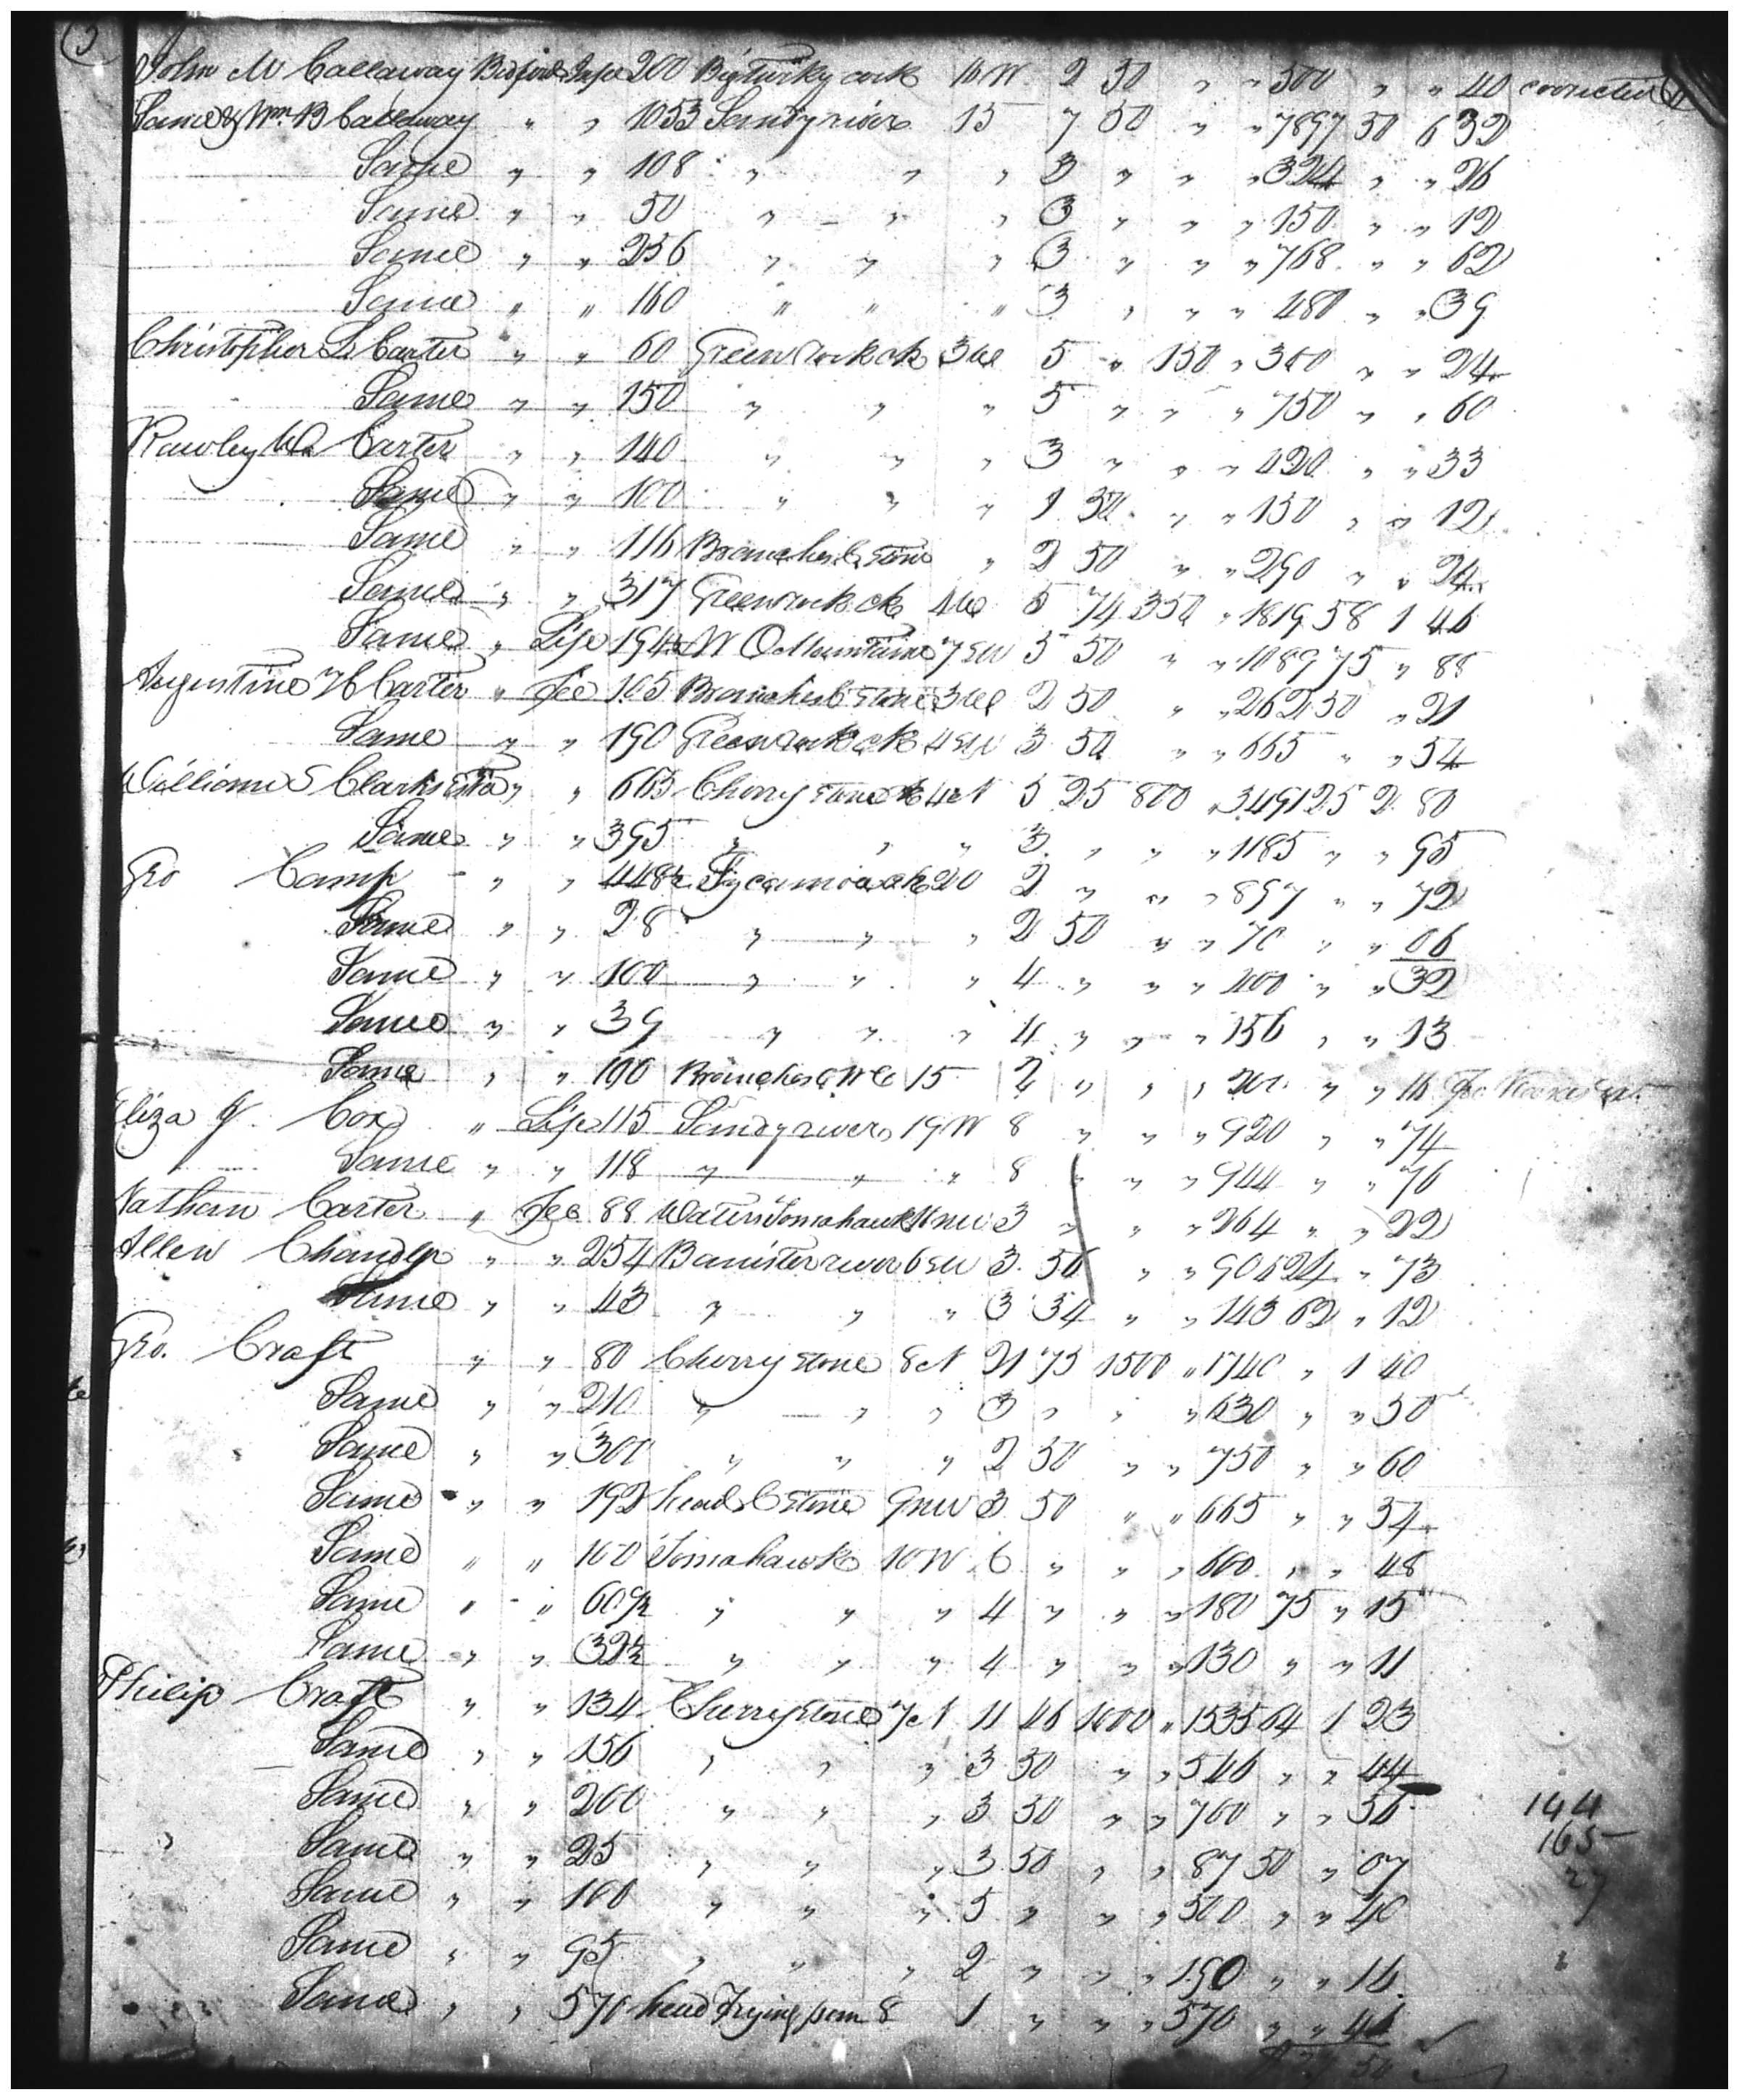 John M Callaway Bedford Life 200 Big turkey cock 16 W 2 50 " " 500 " " 40 corrected
Same & Wm B Callaway " " 1053 Sandy river 15 7 50 " " 7897 50 6 32
Same " " 108 " " " 3 " " " 324 " " 26
Same " " 50 " " " 3 " " " 150 " " 12
Same " " 256 " " " 3 " " " 768 " " 62
Same " " 160 " " " 3 " " " 480 " " 39
Christopher L Carter " " 60 Greenrock ck 3 W 5 " 150 " 300 " " 24
Same " " 150 " " " 5 " " " 750 " " 60
Rawley W Carter " " 140 " " " 3 " " " 420 " " 33
Same " " 100 " " " 1 50 " " 150 " " 12
Same " " 116 Branches C stone " 2 50 " " 290 " " 24
Same " " 317 Greenrock ck 4 W 5 74 350 " 1819 58 1 46
Same " Life 194 W O Mountain 7 SW 5 50 " " 1089 75 " 88
Augustine H Carter " Fee 105 Branches C stone 3 W 2 50 " " 262 50 " 21
Same " " 190 Greenrock ck 4 SW 3 50 " " 665 " " 54
William S Clarks Esta " " 665 Cherry stone ck 4 N 5 25 800 " 3491 25 2 80
Same " " 395 " " " 3 " " " 1185 " " 95
Geo Camp " " 448½ Sycamore ck 20 2 " " " 897 " " 72
Same " " 28 " " " 2 50 " " 70 " " 06
Same " " 100 " " " 4 " " " 400 " " 32
Same " " 39 " " " 4 " " " 156 " " 13
Same " " 100 Branches 15 2 " " " 200 " " 16
Eliza J Cox " Life 115 Sandy river 19 W 8 " " " 920 " " 74
Same " " 118 " " " 8 " " " 944 " " 76
Nathan Carter " Fee 88 Waters Tomahawk 11 NW 3 " " " 264 " " 22
Allen Chandler " " 254 Banister river 6 SW 3 56 " " 904 24 " 73
Same " " 43 " " " 3 34 " " 143 62 " 12
Geo. Craft " " 80 Cherry stone 8 N 21 75 1500 " 1740 " 1 40
Same " " 210 " " " 3 " " " 630 " " 50
Same " " 300 " " " 2 50 " " 750 " " 60
Same " " 192 head C stone 9 NW 3 50 " " 665 " " 54
Same " " 100 Tomahawk 10 W 6 " " " 600 " " 48
Same " " 60 " " " 4 " " " 180 75 " 15
Same " " 32½ " " " 4 " " " 130 " " 11
Philip Craft " " 134 Cherrystone 7 N 11 46 1000 " 1535 64 1 23
Same " " 156 " " " 3 50 " " 546 " " 44
Same " " 200 " " " 3 50 " " 700 " " 56 144
Same " " 25 " " " 3 50 " " 87 50 " 07 165
Same " " 100 " " " 5 " " " 500 " " 40 27
Same " " 95 " " " 2 " " " 190 " " 16
Same " " 570 head Frying pan 8 1 " " " 570 " " 46